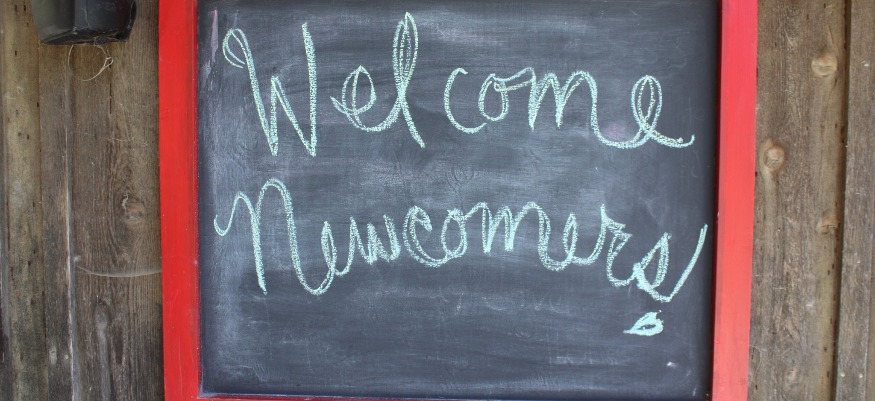 Welcome
Newcomers!